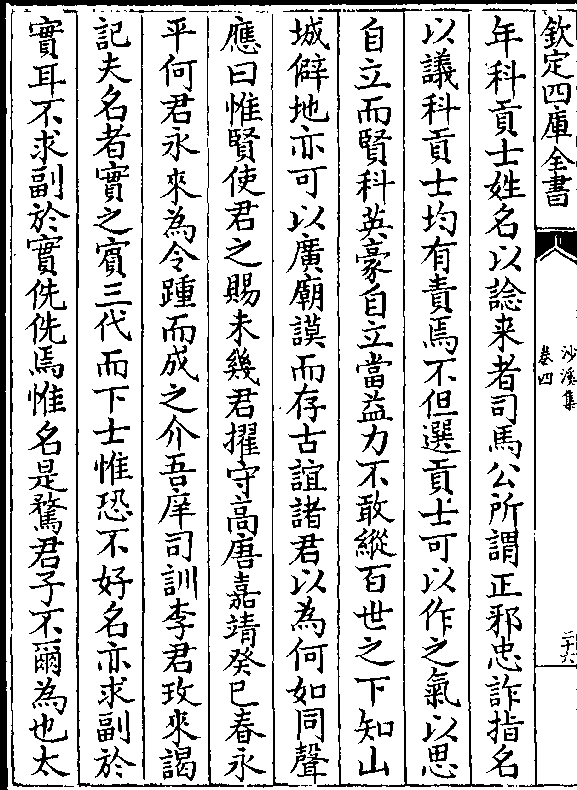 欽定四庫全書
沙溪集
卷四
二十六
年科貢士姓名以諗来者司馬公所謂正邪忠詐指名
以議科貢士均有責焉不但選貢士可以作之氣以思
自立而賢科英豪自立當益力不敢縱百世之下知山
城僻地亦可以廣廟謨而存古誼諸君以為何如同聲
應曰惟賢使君之賜未幾君擢守高唐嘉靖癸巳春永
平何君永來為令踵而成之介吾庠司訓李君玫來謁
記夫名者實之賔三代而下士惟恐不好名亦求副於
實耳不求副於實侁侁焉惟名是騖君子不爾為也太